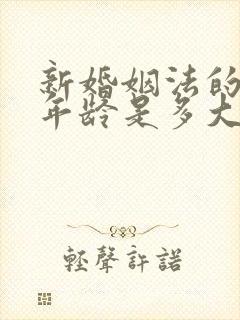 新婚姻法的
年龄是多大
轻聲許諾